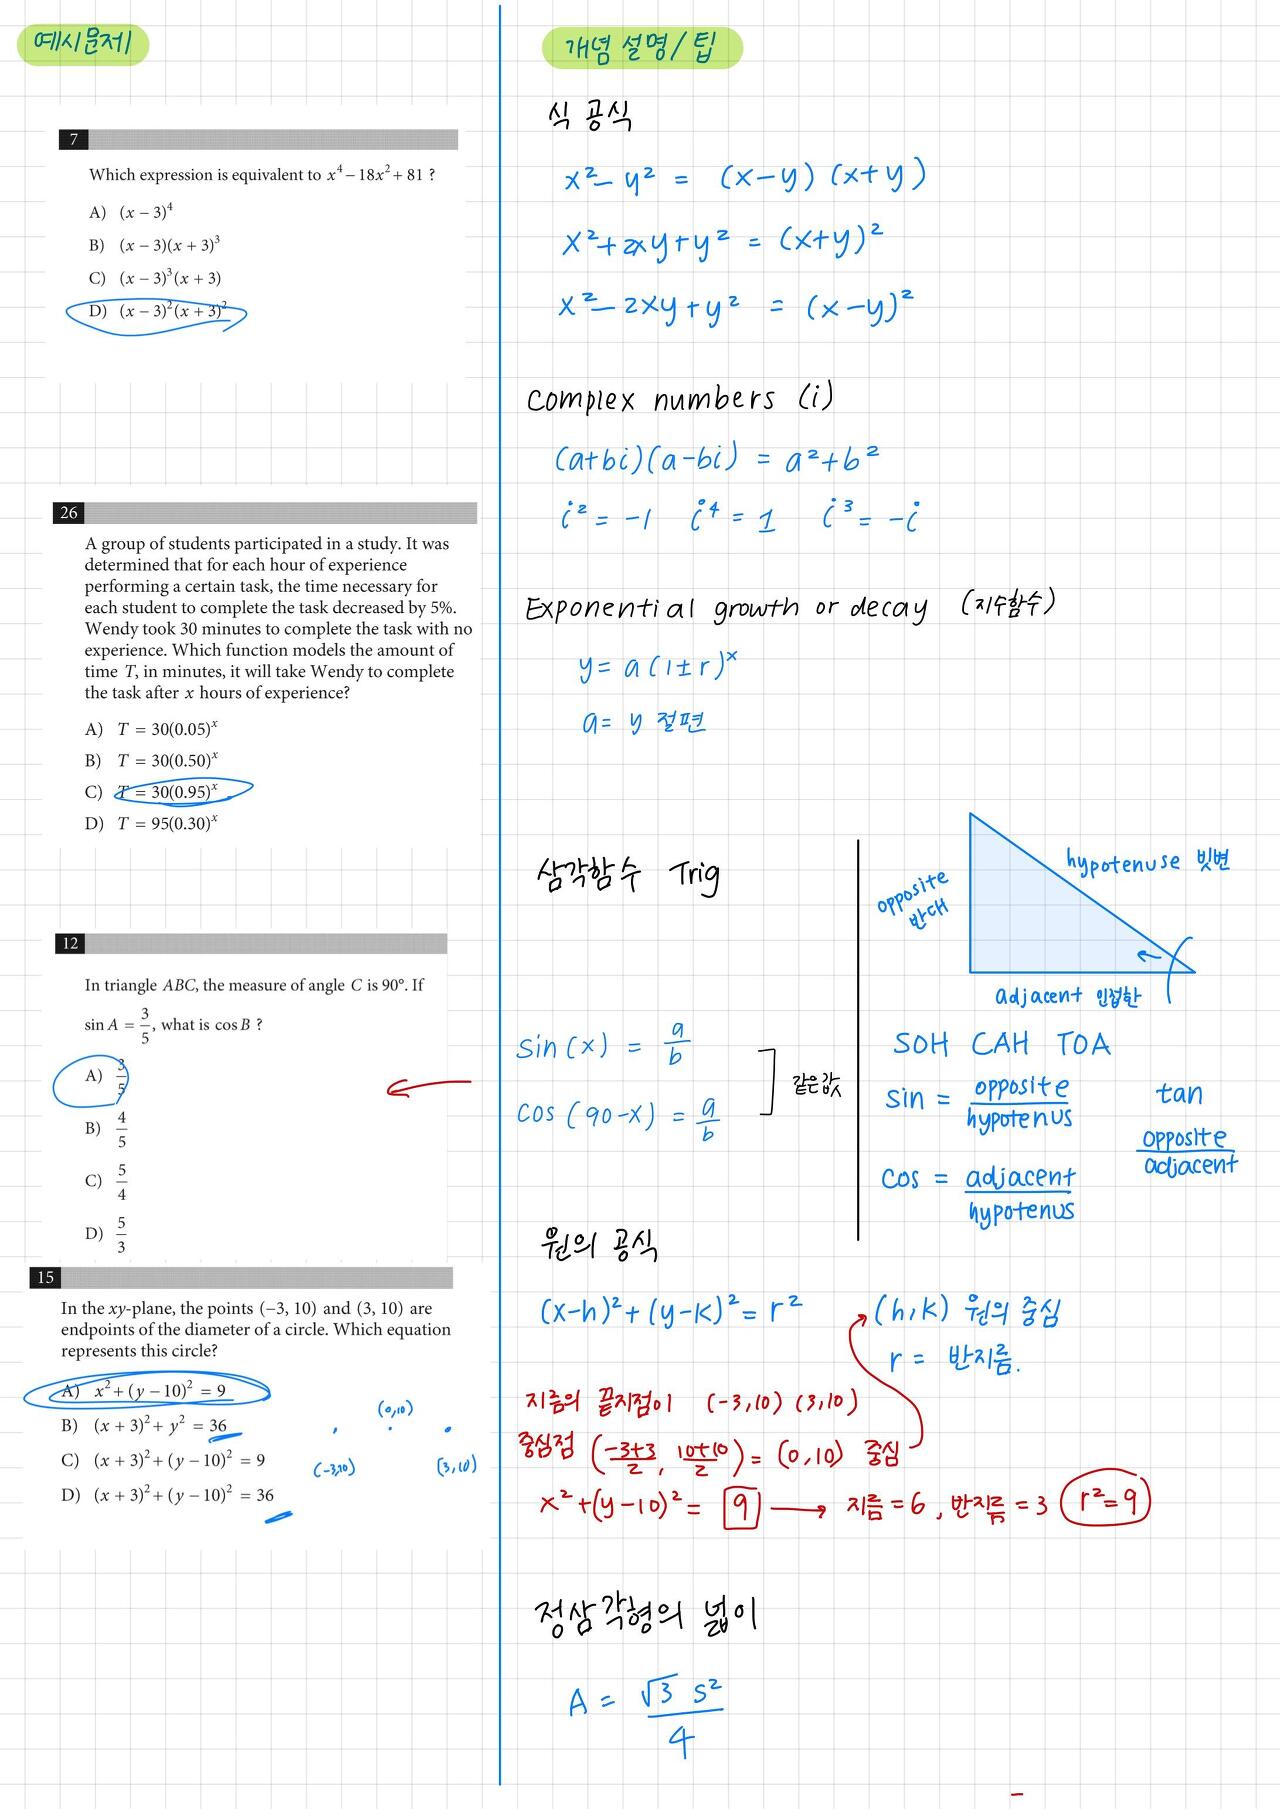 예시문제
7
Which expression is equivalent to x⁴ – 18x² + 81 ?
A) (x – 3)⁴
B) (x – 3)(x + 3)³
C) (x – 3)³(x + 3)
D) (x – 3)²(x + 3)²
26
A group of students participated in a study. It was
determined that for each hour of experience
performing a certain task, the time necessary for
each student to complete the task decreased by 5%.
Wendy took 30 minutes to complete the task with no
experience. Which function models the amount of
time T, in minutes, it will take Wendy to complete
the task after x hours of experience?
A) T = 30(0.05)ˣ
B) T = 30(0.50)ˣ
C) T = 30(0.95)ˣ
D) T = 95(0.30)ˣ
12
In triangle ABC, the measure of angle C is 90°. If
sin A = 3/5, what is cos B ?
A) 3/5
B) 4/5
C) 5/4
D) 5/3
15
In the xy-plane, the points (−3, 10) and (3, 10) are
endpoints of the diameter of a circle. Which equation
represents this circle?
A) x² + (y – 10)² = 9
B) (x + 3)² + y² = 36
C) (x + 3)² + (y – 10)² = 9
D) (x + 3)² + (y – 10)² = 36
(0,10)
(-3,10)
(3,10)
개념 설명/팁
식 공식
x²-y² = (x-y)(x+y)
x²+2xy+y² = (x+y)²
x²-2xy+y² = (x-y)²
Complex numbers (i)
(a+bi)(a-bi) = a²+b²
i² = -1 i⁴ = 1 i³ = -i
Exponential growth or decay (지수함수)
y = a(1±r)ˣ
a = y 절편
삼각함수 Trig
sin(x) = a/b
cos(90-x) = a/b
같은값
hypotenuse 빗변
opposite
반대
adjacent 인접한
SOH CAH TOA
sin = opposite/hypotenus
tan
opposite/adjacent
cos = adjacent/hypotenus
원의 공식
(x-h)²+(y-k)² = r²
(h,k) 원의 중심
r = 반지름.
지름의 끝지점이 (-3,10) (3,10)
중심점 (-3+3/2, 10+10/2) = (0,10) 중심
x²+(y-10)² = 9 → 지름=6, 반지름=3 r²=9
정삼각형의 넓이
A = √3 s²/4